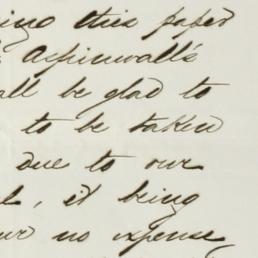 ing this paper
Aspinwall's
all be glad to
to be taken
due to our
l, it being
ur no expense